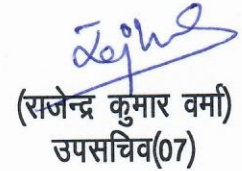 (राजेन्द्र कुमार वर्मा)
उपसचिव(07)